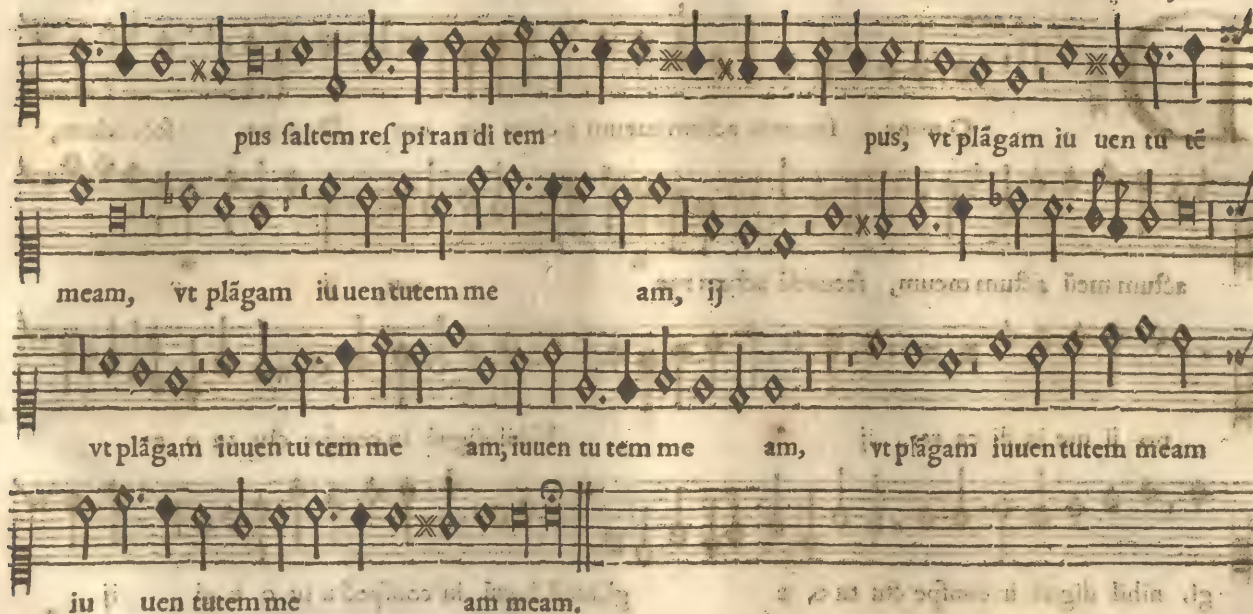 pus ſaltem reſ pi ran di tem pus, vt plãgam iu uen tu tẽ
meam, vt plãgam iu uen tutem me am, ij
vt plãgam iuuen tu tem me am, iuuen tu tem me am, vt plãgam iuuen tutem meam
iu uen tutem me am meam.